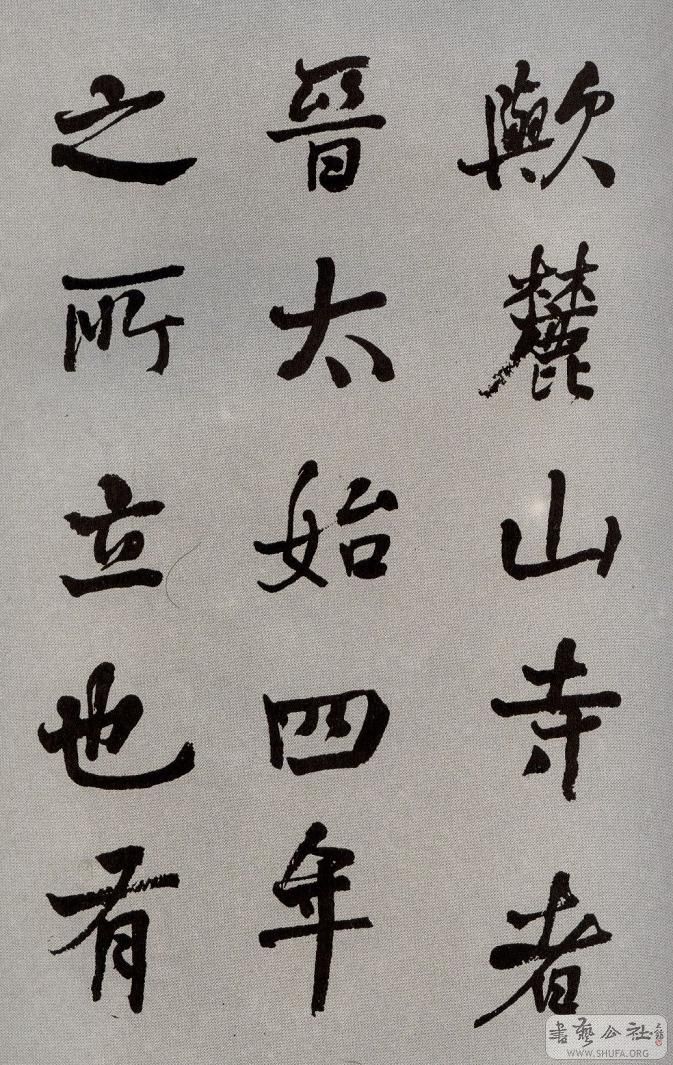 歟麓山寺者
晉太始四年
之所立也有
書藝公社
WWW.SHUFA.ORG